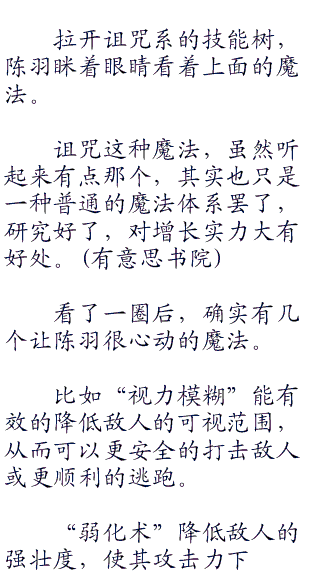 拉开诅咒系的技能树，
陈羽眯着眼睛看着上面的魔
法。
诅咒这种魔法，虽然听
起来有点那个，其实也只是
一种普通的魔法体系罢了，
研究好了，对增长实力大有
好处。(有意思书院)
看了一圈后，确实有几
个让陈羽很心动的魔法。
比如“视力模糊”能有
效的降低敌人的可视范围，
从而可以更安全的打击敌人
或更顺利的逃跑。
“弱化术”降低敌人的
强壮度，使其攻击力下